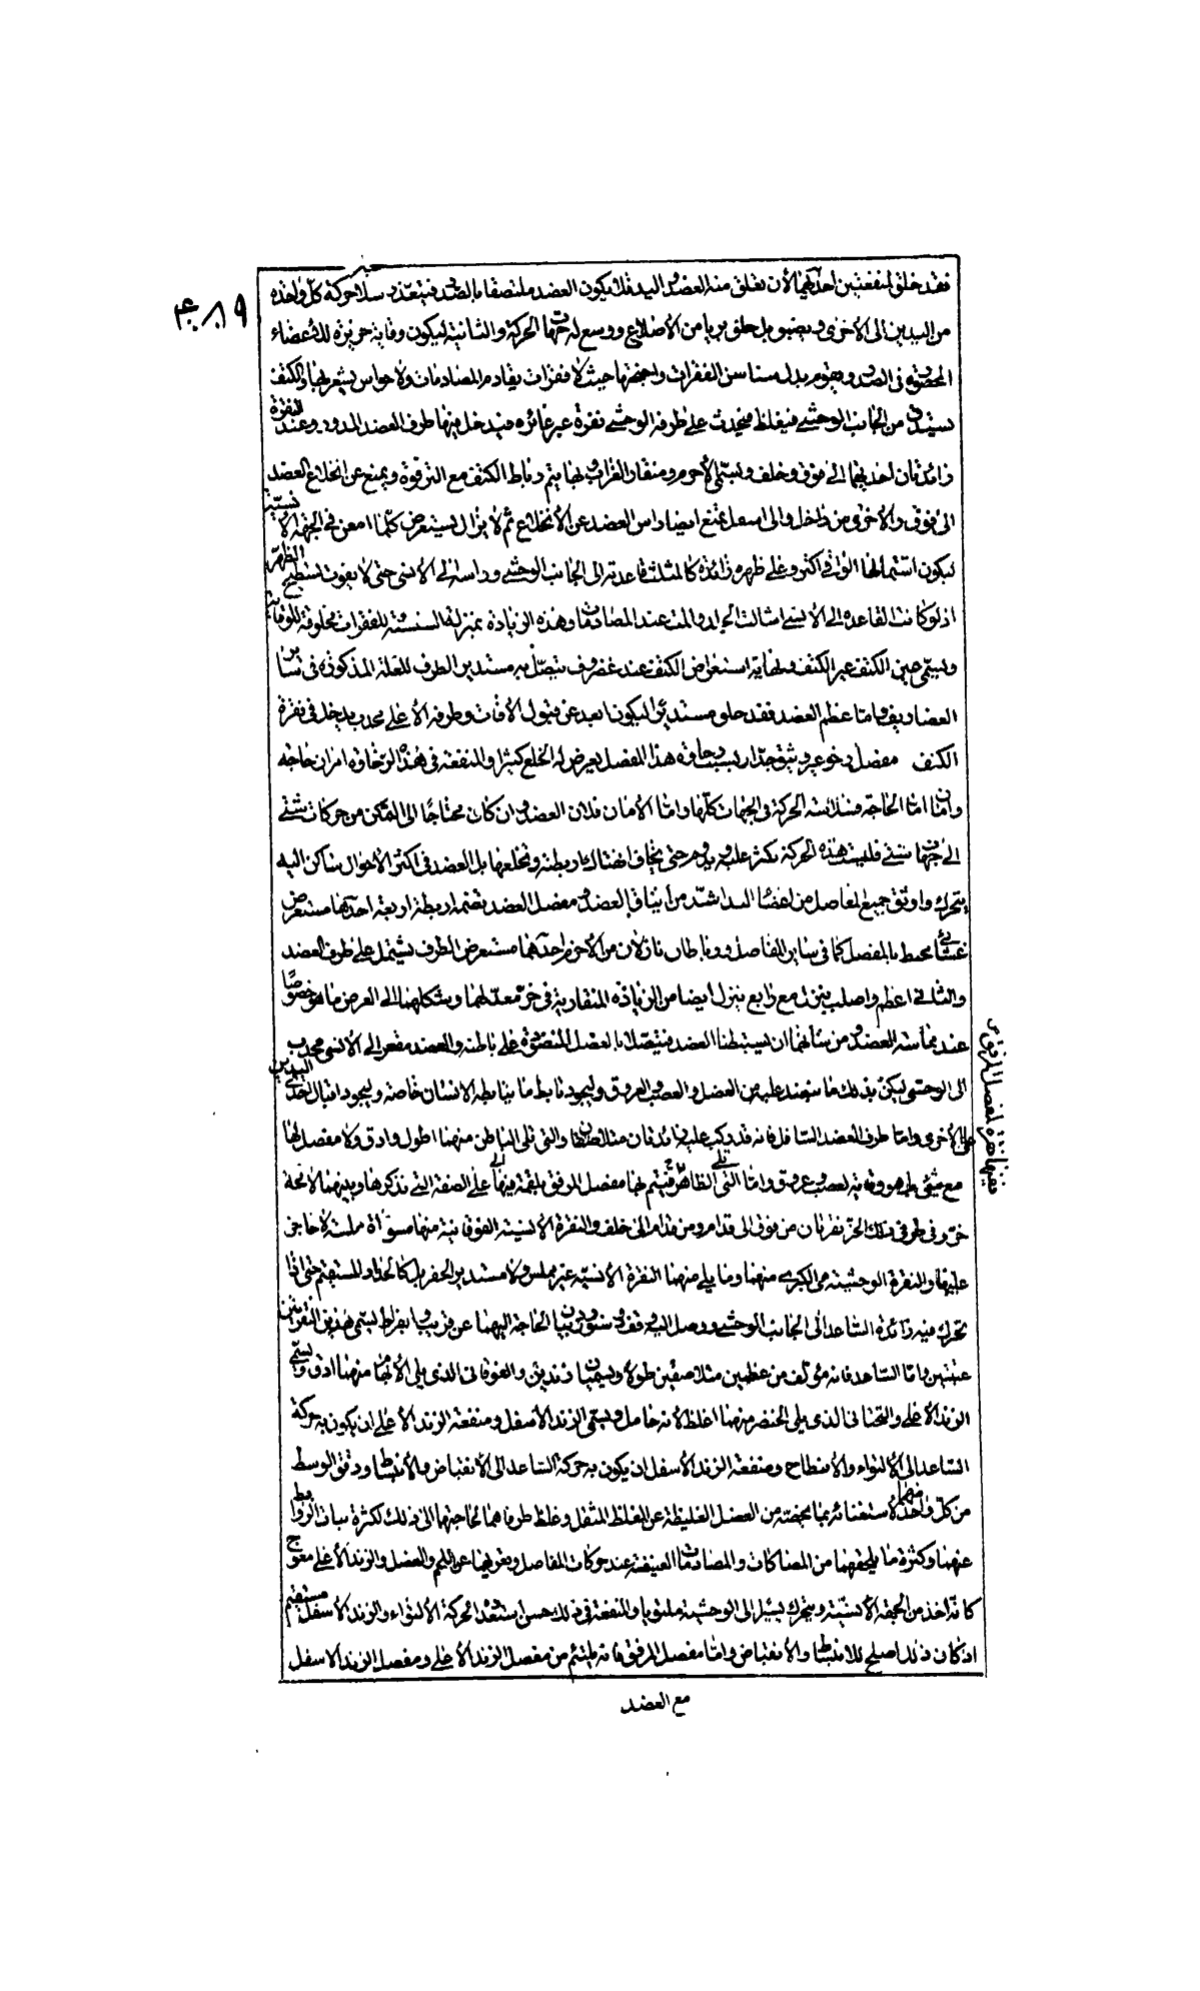 فقد خلق لمنفعتين احدٰهما لأن تعلق منه العضد واليد فلا يكون العضد ملتصقا بالصدر فيتعذر سلاسة حركة كلّ واحدة
من اليدين الى الأخرى ويضيق بل خلق بريا من الأضلاع ووسع له جهات الحركة والثانية ليكون وقاية حريزة للأعضاء
المحصورة فى الصدر ويقوم بدل سناسن الفقرات واجنحتها حيث لا فقرات يقاوم المصادمات ولا حواس يشعر بها والكتف
يستدق من الجانب الوحشى فيغلظ فيحدث على طرفه الوحشى نقرة غير غائرة فيدخل فيها طرف العضد المدور وعند النقرة
زائدتان احديهما الى فوق وخلف ويسمى الأخرم ومنقار الغراب وبها يتم رباط الكتف مع الترقوة ويمنع عن انخلاع العضد
الى فوق والأخرى من داخل والى اسفل تمنع ايضا راس العضد عن الأنخلاع ثم لا يزال يستعرض كلّما امعن فى الجهة الأنسيّة
ليكون اشتمالها الواقى اكثر وعلى ظهره زائدة كالمثلث قاعدته الى الجانب الوحشى وراسه الى الأنسى حتى لا يفوت تسطيح الظهر
اذ لو كانت القاعدة الى الانسى اشالت الجلد والمت عند المصادمات وهذه الزيادة بمنزلة السنسنة للفقرات مخلوقة للوقاية
ويسمى عين الكتف عير الكتف ونهاية استعراض الكتف عند غضروف يتصل به مستدير الطرف للعلة المذكورة فى سائر
الغضاريف واما عظم العضد فقد خلق مستديرا ليكون ابعد عن قبول الأفات وطرفه الأعلى محدب يدخل فى نقرة
الكتف مفصل رخو غير وثيق جدّا وبسبب رخاوة هذا المفصل يعرض له الخلع كثيرا والمنفعة فى هذه الرخاوة امران حاجة
وامان اما الحاجة فسلاسة الحركة فى الجهات كلّها واما الأمان فلان العضد وان كان محتاجًا الى التمكن من حركات شتى
الى جهات شتى فليست هذه الحركة تكثر عليه ويدوم حتى يخاف انهتاك اربطته وتخلعها بل العضد فى اكثر الأحوال ساكن اليد
يتحرك واوثق جميع مفاصل من اعضاء اليد اشدّ من ايثاق العضد ومفصل العضد تضمه اربطة اربعة احدٰها مستعرض
غشائى محيط بالمفصل كما فى سائر المفاصل ورباطان نازلان من الأخرم احدٰهما مستعرض الطرف يشتمل على طرف العضد
والثانى اعظم واصلب ينزل مع رابع ينزل ايضا من الزيادة المنقارية فى حز معدّ لهما وشكلهما الى العرض ما هو خصوصًا
عند مماسة العضد ومن شأنهما ان يستبطنا العضد فيتصلا بالعضل المنضودة على باطنه والعضد مقعر الى الأنسى محدب
الى الوحشى ليكن بذلك ما ينتضد عليه من العضل والعصب والعروق وليجود تابط ما يتابطه الانسان خاصة وليجود اقبال احدى اليدين
على الأخرى واما طرف العضد السافل فانه قد ركب عليه زائدتان متلاصقتان والتى تلى الباطن منهما اطول وادق ولا مفصل لها
مع شئ بل هو وقاية لعصب وعروق واما التى تلى الظاهر فيتم بها مفصل المرفق بلقمة فيها على الصفة التى نذكرها وبينهما لا محالة
حز وفى طرفى ذلك الحز نقرتان من فوق الى قدام ومن قدام الى خلف والنقرة الأنسية الفوقانية منهما مسواة مملسة لا حاجز
عليها والنقرة الوحشية هى الكبرى منهما وما يلى منها النقرة الانسيّة غير مملس ولا مستدير الحفر بل كالجدار المستقيم حتى اذا
تحرك فيه زائدة الساعد الى الجانب الوحشى ووصل اليه وقف وسنورد بيان الحاجة اليهما عن قريب وبقراط يسمى هذين النقرتين
عينين واما الساعد فانه مؤلف من عظمين متلاصقين طولا ويسميان زندين والفوقانى الذى يلى الأبهام منهما ادق ويسمى
الزند الأعلى والتحتانى الذى يلى الخنصر منهما اغلظ لأنه حامل ويسمى الزند الأسفل ومنفعة الزند الأعلى ان يكون به حركة
الساعد الى الألتواء والأنبطاح ومنفعة الزند الأسفل ان يكون به حركة الساعد الى الأنقباض والأنبساط ودقق الوسط
من كلّ واحد منهما لأستغنائه بما يحفه من العضل الغليظة عن الغلظ المثقل وغلظ طرفاهما لحاجتهما الى ذلك لكثرة نبات الروابط
عنهما وكثرة ما يلحقهما من المصاكات والمصادمات العنيفة عند حركات المفاصل وتعريهما عن اللحم والعضل والزند الأعلى معوج
كانه اخذ من الجهة الأنسيّة ويتحرك يسيرا الى الوحشية ملتويا والمنفعة فى ذلك حسن استعداد لحركة الألتواء والزند الأسفل مستقيم
اذ كان ذلك اصلح للانبساط والأنقباض واما مفصل المرفق فانه يلتئم من مفصل الزند الأعلى ومفصل الزند الاسفل
مع العضد